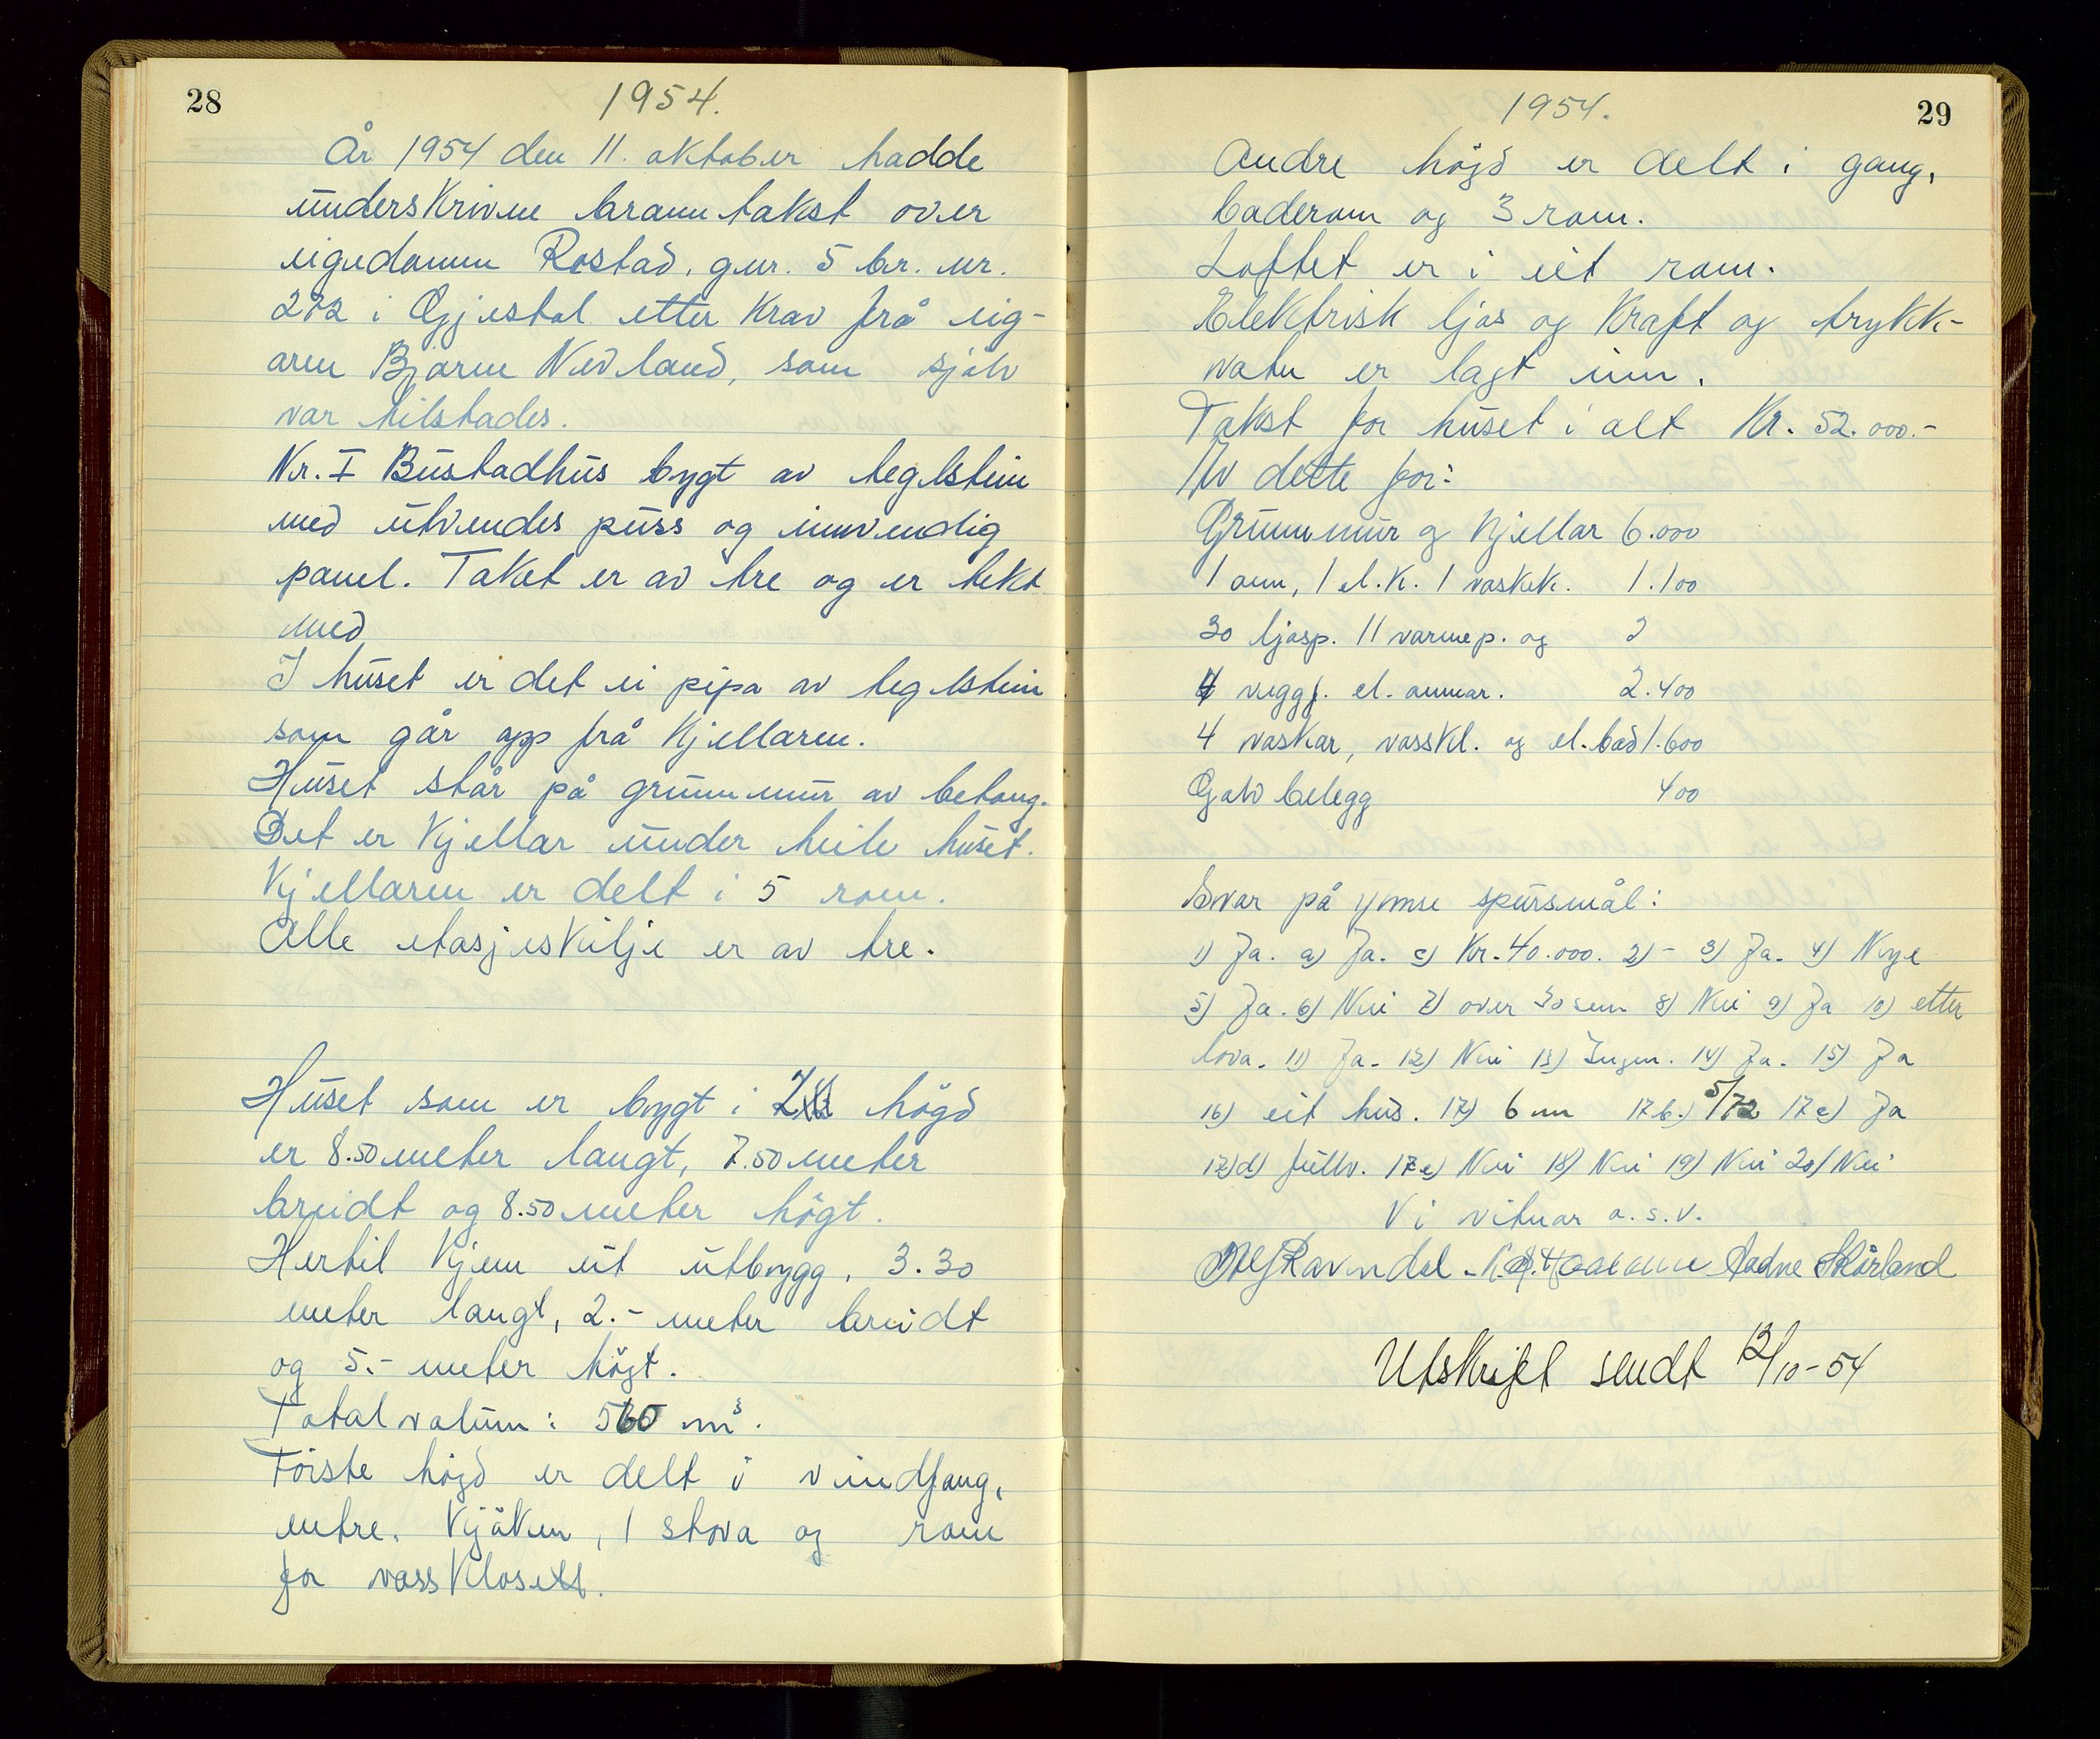 28
1954.
År 1954 den 11. oktober hadde
underskrivne branntakst over
eigedomm Rostad, gnr. 5 br. nr.
272 i Gjestal etter krav frå eig-
aren Bjarne Nedland, som sjølv
var tilstades.
Nr. I Bustadhus bygt av teglstein
med utvendes puss og innvendig
panel. Taket er av tre og er tekt
med
I huset er det ei pipa av teglstein
som går opp frå kjellaren.
Huset står på grunnmur av betong.
Det er kjellar under heile huset.
Kjellaren er delt i 5 rom.
Alle etasjeskilje er av tre.
Huset som er bygt i 2 högd
er 8.50 meter langt, 7.50 meter
breidt og 8.50 meter högt.
Hertil kjem eit utbygg, 3.30
meter langt, 2.- meter breidt
og 5.- meter högt.
Total volum: 560 m³.
Förste högd er delt i vindfang,
entre. Kjöken, 1 stova og rom
for vassklosett.
1954.
29
Andre högd er delt i gang,
baderom og 3 rom.
Loftet er i eit rom.
Elektrisk ljos og kraft og trykk-
vatn er lagt inn.
Takst for huset i alt Kr. 52.000.-
Av dette for:
Grunnmur og kjellar 6.000
1 omn, 1 el.k. 1 vaskek. 1.100
30 ljosp. 11 varmep. og
4 veggf. el. omnar. 2.400
4 vaskar, vasskl. og el. bad 1.600
Golvbelegg 400
Svar på ymse spursmål:
1) Ja. a) Ja. c) Kr. 40.000. 2) - 3) Ja. 4) Nye
5) Ja. 6) Nei 7) over 30 sem 8) Nei 9) Ja 10) etter
lova. 11) Ja. 12) Nei 13) Ingen. 14) Ja. 15) Ja
16) eit hus. 17) 6 m 17b.) 5/72 17c) Ja
17d) fullv. 17e) Nei 18) Nei 19) Nei 20) Nei
Vi vitnar o.s.v.
Ravndal - Aadne Skårland
Utskrift sendt 12/10-54